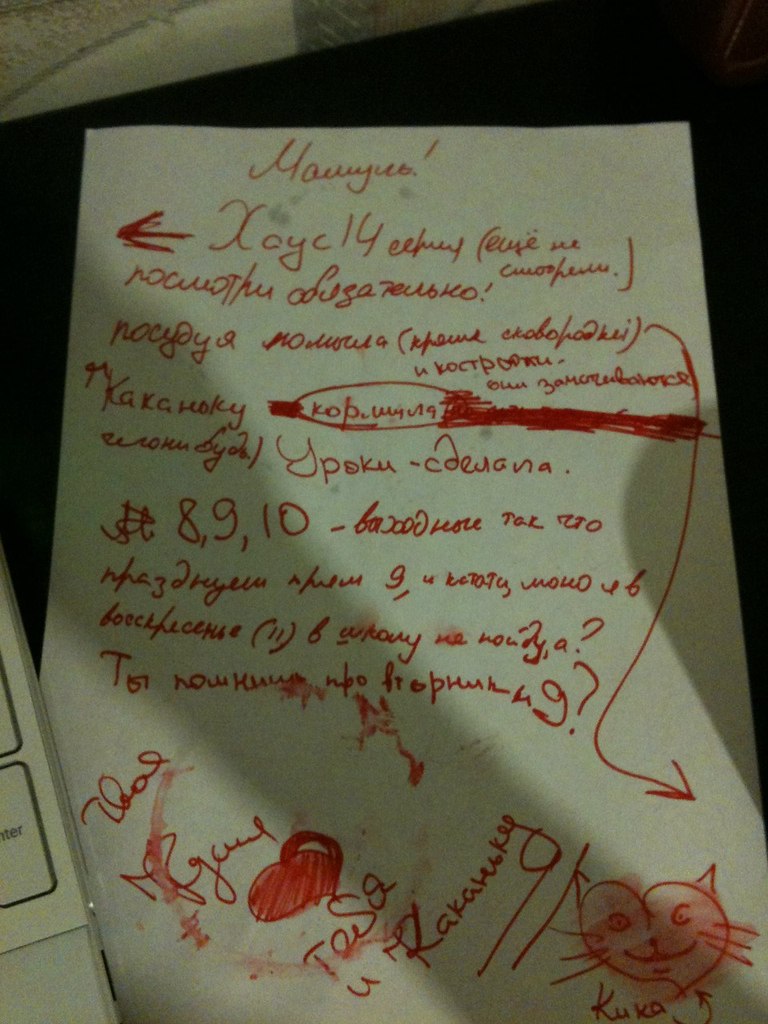 Мамуль!
Хаус 14 серия (ещё не
смотрели.)
посмотри обязательно!
посуду я помыла (кроме сковородки)
и кастрюли.
они замачиваются
Каканьку кормила
Уроки - сделала.
8, 9, 10 - выходные так что
празднуем прям 9, и кстати, можно я в
воскресенье (11) в школу не пойду, а?
Ты помнишь про вторник и 9?
Твоя
тебя
и Каканьку
Кика
nter